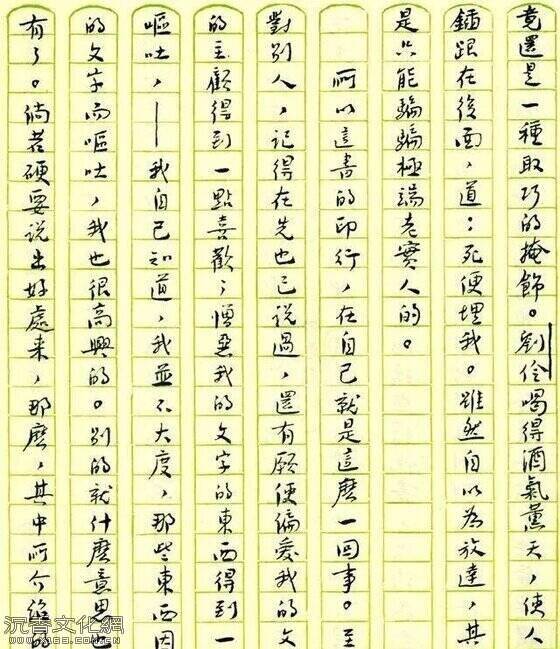 竟還是一種取巧的掩飾。劉伶喝得酒氣薰天，使人
鍤跟在後面，道：死便埋我。雖然自以為放達，其
是只能騙騙極端老實人的。
所以這書的印行，在自己就是這麼一回事。至
對別人，記得在先也已說過，還有願使偏愛我的文
的主顧得到一點喜歡；憎惡我的文字的東西得到一
嘔吐，——我自己知道，我並不大度，那些東西因
的文字而嘔吐，我也很高興的。別的就什麼意思也
有了。倘若硬要說出好處來，那麼，其中所介紹的
沉香文化網